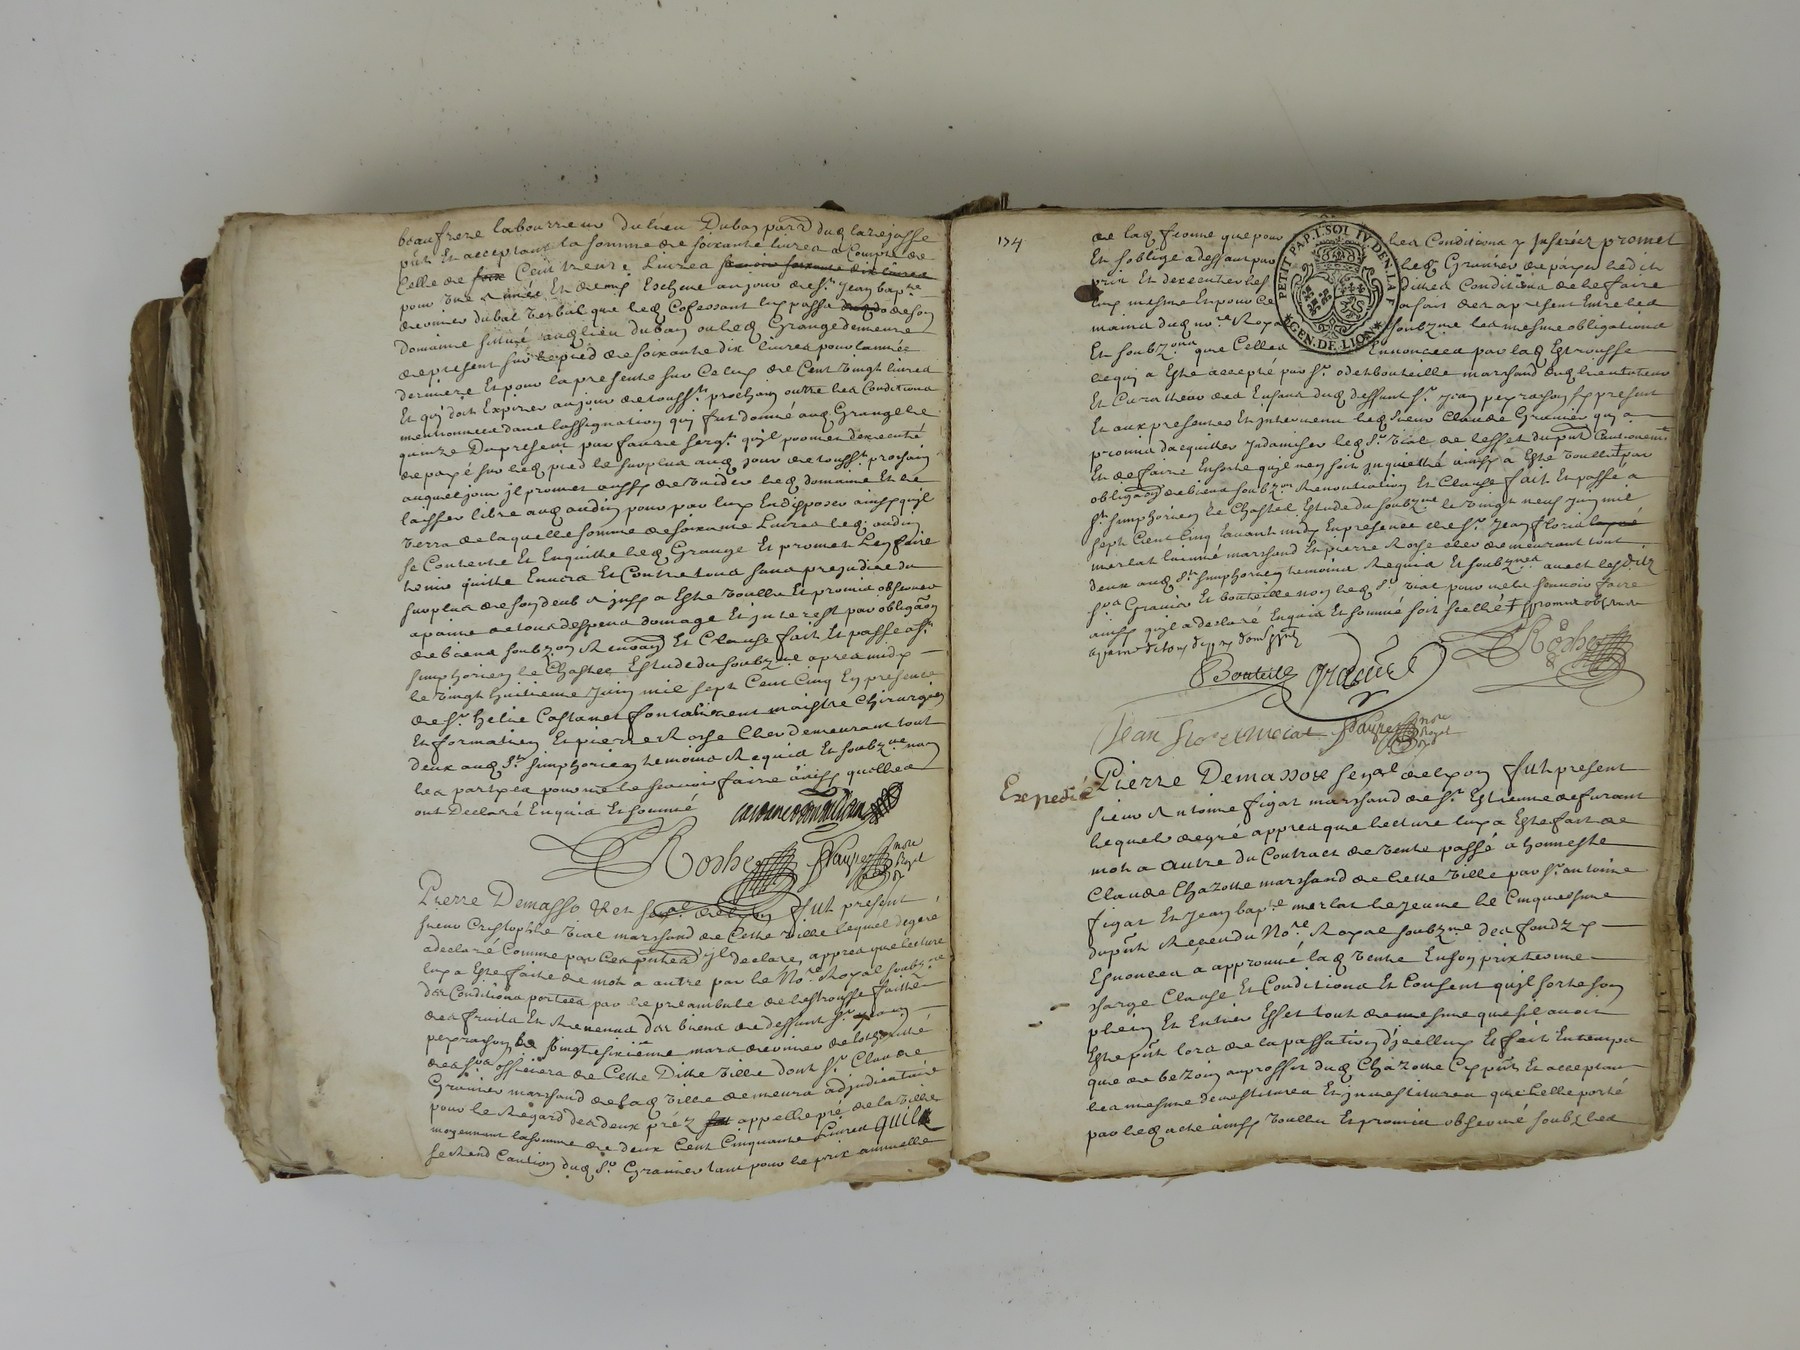 beaufrere labourreur du lieu Dubay parr. dud larejasse
pnt et acceptant la somme de soixante livres a Compte de
Celle de Cent trente Livres
pour une année Et demy Escheue au jour de St Jean bapte
dernier du bal verbal que led Cofessant luy passa de son
domaine situué aud lieu dubay ou led Grange demeure
a present sur le pied de soixante dix livres pour lannée
derniere Et pour la presente sur Celuy de Cent vingt livres
Et qui doit Expirer au jour de touss.ts prochain outre les Conditions
mentionnees dans lassignation quj fut donné aud Grange le
quinze Du present par faure serg.t quil promet dexecuté
de payé sur led pied le surplus aud jour de touss.t prochain
auquel jour jl promet aussy de vuider led domaine Et le
laisser libre aud audin pour par luy En disposer ainsy quil
verra de laquelle somme de soixante Livres led. audin
se Contente Et Enquitte led Grange Et promet Len faire
tenir quitte Envers Et Contre tous sans prejudice du
surplus de son deub ainsy a Esté voullu Et promis observer
a paine de tous despens domage Et jnterest par obligãon
de biens soubz.on Renonõn Et Clause fait Et passé a St
simphorien le Chastel Estude du soubz.né apres midy
le vingt huitieme Juin mil sept Cent Cinq En presence
de Sr helie Castanet fontabirent maistre Chirurgien
Et formatien Et pierre Roche Clerc demeurant tout
deux aud St simphorien temoins Requis Et soubz.né non
les partyes pour ne le scavoir faire ainsy quelles
ont Declaré Enquis Et sommé
Roche faure nore Royal
Pierre Demasso Et en senal de lyon fut present
sieur Cristophle vial marchand de Cette ville lequel de gré
a declaré Comme par Ces pntes jl declare, appres que lecture
luy a Esté faite de mot a autre par le No.re Royal soubz.né
des Conditions portées par le preambule de lestrousse faitte
des fruits Et Revenus des biens de deffunt Sr jean
peyrachon le vingt sixieme mars dernier de lothorité
des Srs officiers de Cette Ditte ville dont Sr Claude
Granier marchand de lad ville demeura adjudicataire
pour le Regard des deux préz appellé pré de la ville
moyennant la somme de deux Cent Cinquante Livres quil
se Rend Caution dud Sr Granier tant pour le prix annuelle
134
de lad ferme que pour les Conditions y Inserées promet
Et soblige a deffaut par led Granier de payer ledit
prix Et dexecuter les dittes Conditions de le faire
luy mesme Et pour ce a fait des a present Entre les
mains dud no.re Royal soubz.né les mesme obligations
Et soubz.ons que Celles Ennoncees par lad Estrousse
Ce qui a Esté accepté par Sr odet bouteille marchand aud lieu tuteur
Et Curatheur des Enfans dud deffunt Sr jean peyrachon jcy present
Et aux presentes Est jntervenu led sieur Claude Granier quj a
promis dacquitter jndamiser led Sr vial de leffet du pnt Cautionem.t
Et de faire Ensorte quil nen soit jnquietté ainsy a Esté voullu par
obligãon de biens soubz.on Renontiation Et Clause fait Et passé a
St simphorien le Chastel Estude du soubz.né le vingt neuf juin mil
sept Cent Cinq avant midy En presence de Sr jean floris
merlat lainné marchand Et pierre Roche clerc demeurant tout
deux aud St simphorien temoins Requis Et soubz.nés avec lesditz
Srs Granier Et bouteille non led Sr vial pour ne le scavoir faire
ainsy quil a declaré Enquis Et sommé soit scellé promis observer
a paine de tous
Bouteille Granier Roche
Jean merlat faure nore Royal
Expedié
Pierre Demasso Et senal de lyon fut present
sieur Antoine figat marchand de St Estienne de furant
lequel de gré appres que lecture luy a Esté fait de
mot a autre du Contract de vente passé a honneste
Claude Chazotte marchand de Cette ville par Sr antoine
figat Et jean bap.te merlat le jeune le Cinquiesme
du pnt Receu du No.re Royal soubz.né des fondz y
Esnoncés a approuvé lad vente En son prix terme
charge Clause Et Conditions Et Consent quil sorte son
plein Et Entier Effet tout de mesme que sil avoit
Esté pnt lors de la passation djcelluy Et fait En temps
que de bezoin au proffit dud Chazotte Cy pnt Et acceptant
les mesme devestitures Et jnvestitures que Celle porté
par led acte ainsy voullu Et promis observé soubz les
PETIT PAP. I. SOL IV. DEN. LA F
GEN. DE LION